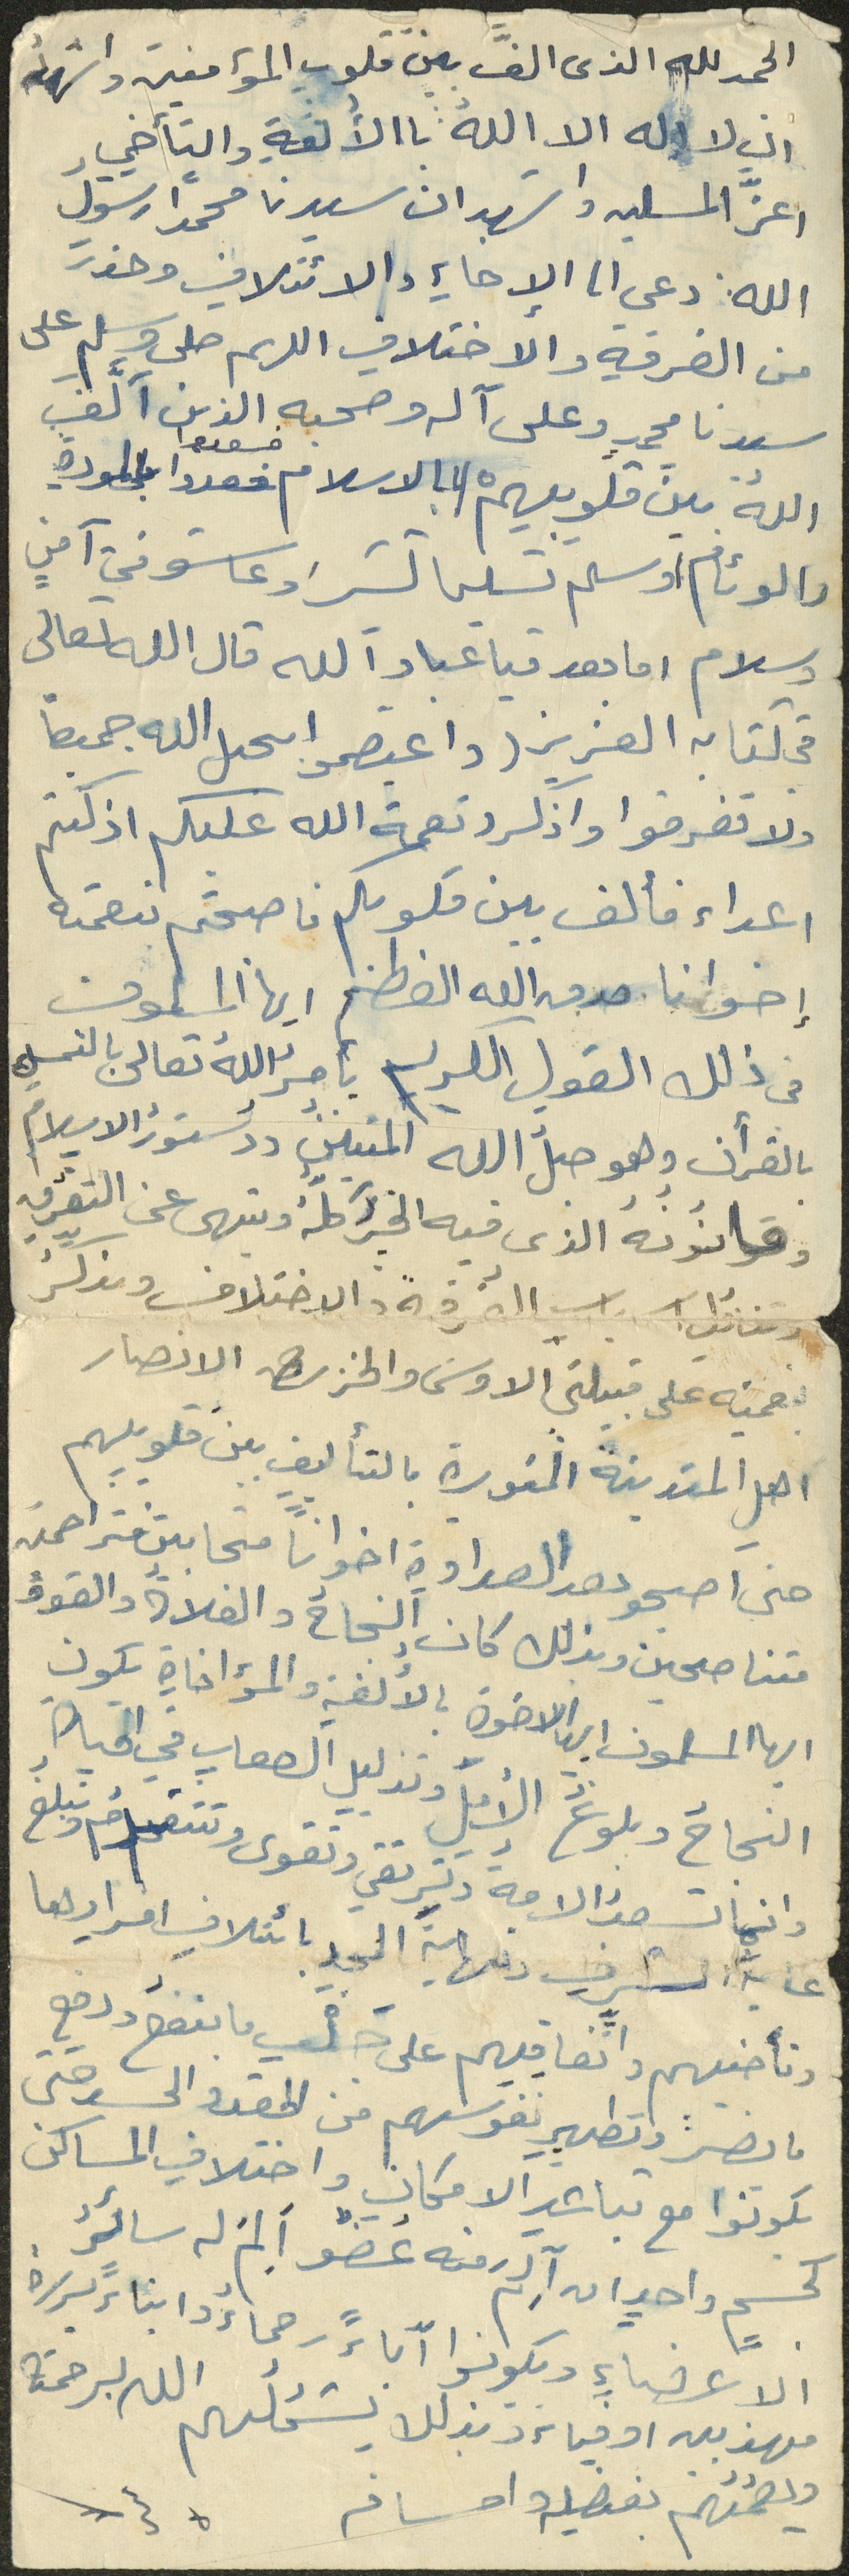 الحمد لله الذى الفَّ بين قلوب المؤمنين واشهد
ان لا اله الا اللهُ باالأُلفةِ والتآخي
اعزَّ المسلين واشهد ان سيدنا محمداً رسول
الله: دعى الى الإخاءِ والائتلافِ وحذر
من الفرقةِ والاختلافِ اللهم صلى وسلم على
سيدنا محمدٍ وعلى آله وصحبه الذين ألَّف
اللهُ بين قلوبهم بالاسلام فسعدوا بالمودةِ
والوئام وسلم تسليما كثيرا وعاشو في آمنٍ
وسلام اما بعد فيا عباد الله قال الله تعالى
في كتابه العزيز (واعتصموا بحبل الله جميعاً
ولا تفرقوا واذكرو نعمة الله عليكم اذ كنتم
اعداء فألف بين قلوبكم فاصبحتم بنعمته
إخوانا صدق الله العظيم ايها المسلمون
في ذلك القول الكريم يأمرُ اللهُ تعالى بالتمسك
بالقرأن وهو حبلُ الله المتينُ ودستورُ الاسلام
وقانُونُهُ الذى فيه الخيرُ كلُّهُ وينهى عن التفرقِ
الفُرقة والاختلاف ويذكرُ
بنعمته على قبيلتي الاوس والخزرج الانصار
اهل المدينة المنورة بالتأليف بين قلوبهم
حتى اصبحو بعد العداوةِ اخواناً متحابين متراحمين
متناصحين وبذلك كان النجاحُ والفلاحُ والقوةُ
ايها المسلمون ايها الاخوة بالأُلفةِ والمؤاخاةِ يكون
النجاحُ وبلوغُ الأملِ وتذليل الصعابِ في الحياة
وانما تسعدُ الامةُ وترتقي وتقوى وتتقدمُ وتبلغُ
غايةَ الشرفِ ونهايةَ المجدِ بائتلافِ افرادها
وتأخيهم واتِّفاقهم على جلبِ ما ينفعُ ودفعِ
ما يضرُّ وتطهيرِ نفوسهم من الحقد والحسد حتى
يكونوا مع تباعدِ الامكانِ واختلافِ المساكن
كجسمٍ واحدٍ ان آلم منه عُضوٌ ألم له سائرُ
الاعضاءِ ويكونوا آباءً رحماءُ وابناءً بررةً
مهذبين اوفياء وبذلك يشملُهم الله برحمته
ويعمُّهم بفضله واحسانه